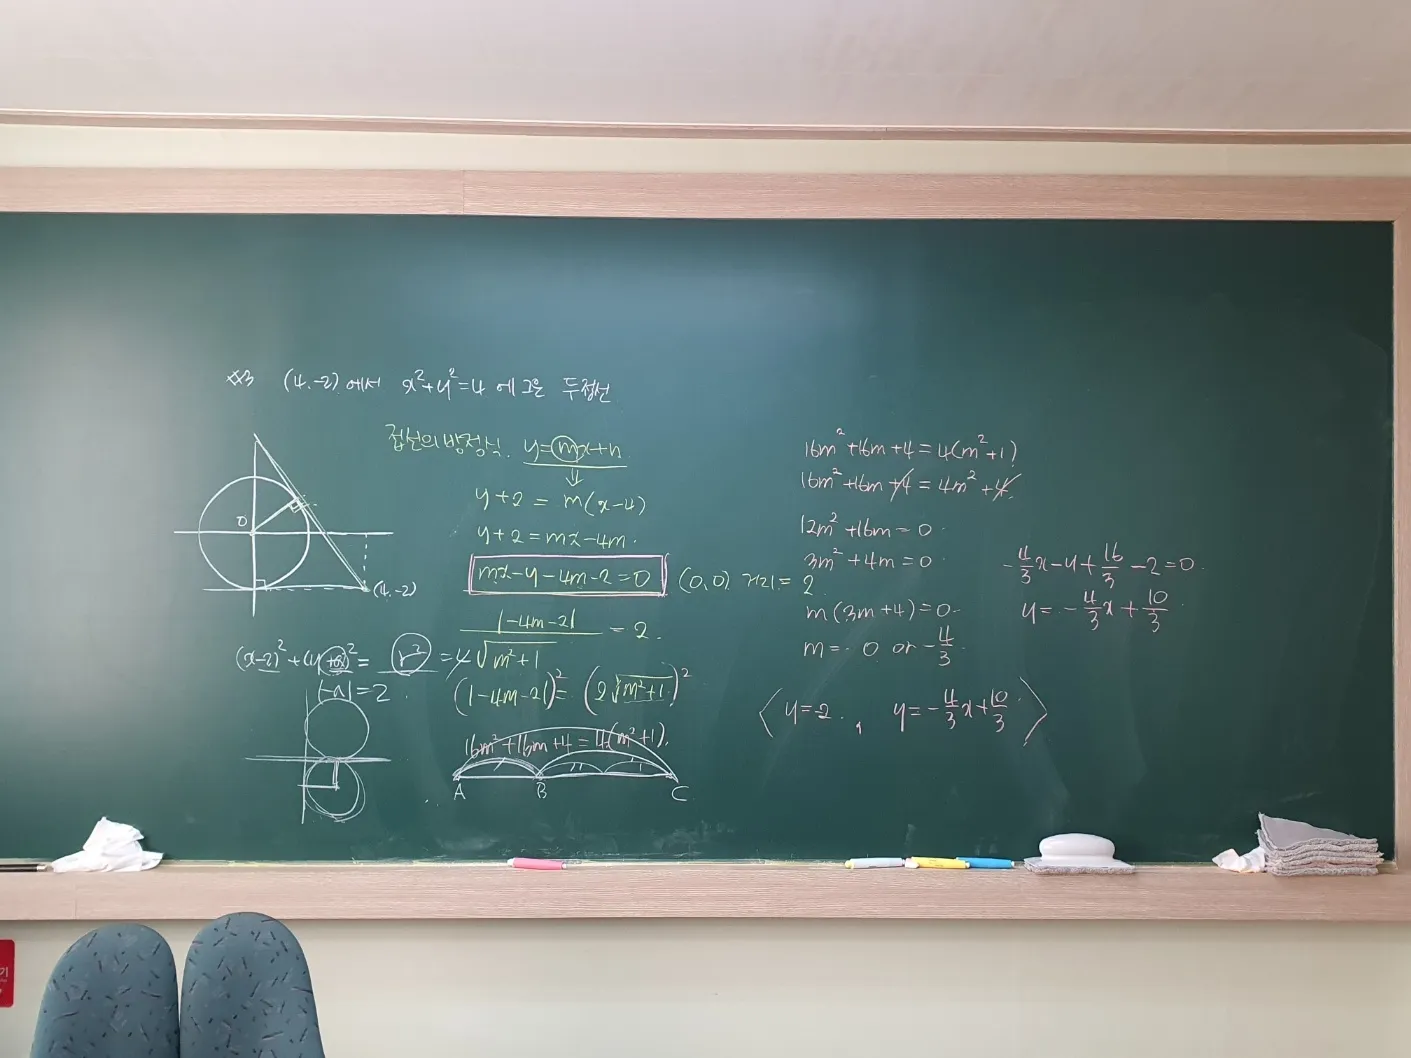 (4.-2) 에서 x²+y²=4 에 그은 두접선
접선의 방정식. y=mx+n
⇓
y+2 = m(x-4)
y+2 = mx-4m.
mx-y-4m-2=0 (0,0) 거리= 2
|-4m-2| / √m²+1 = 2.
(|-4m-2|)² = (2√m²+1)²
16m²+16m+4=4(m²+1).
A B C
O
(4.-2)
r² = 4
|-a|=2
16m²+16m+4=4(m²+1)
16m²+16m+4=4m²+4.
12m²+16m=0
3m²+4m=0
m(3m+4)=0.
m= 0 or -4/3
-4/3x-y+16/3-2=0.
y=-4/3x+10/3
〈 y=-2. , y=-4/3x+10/3 〉